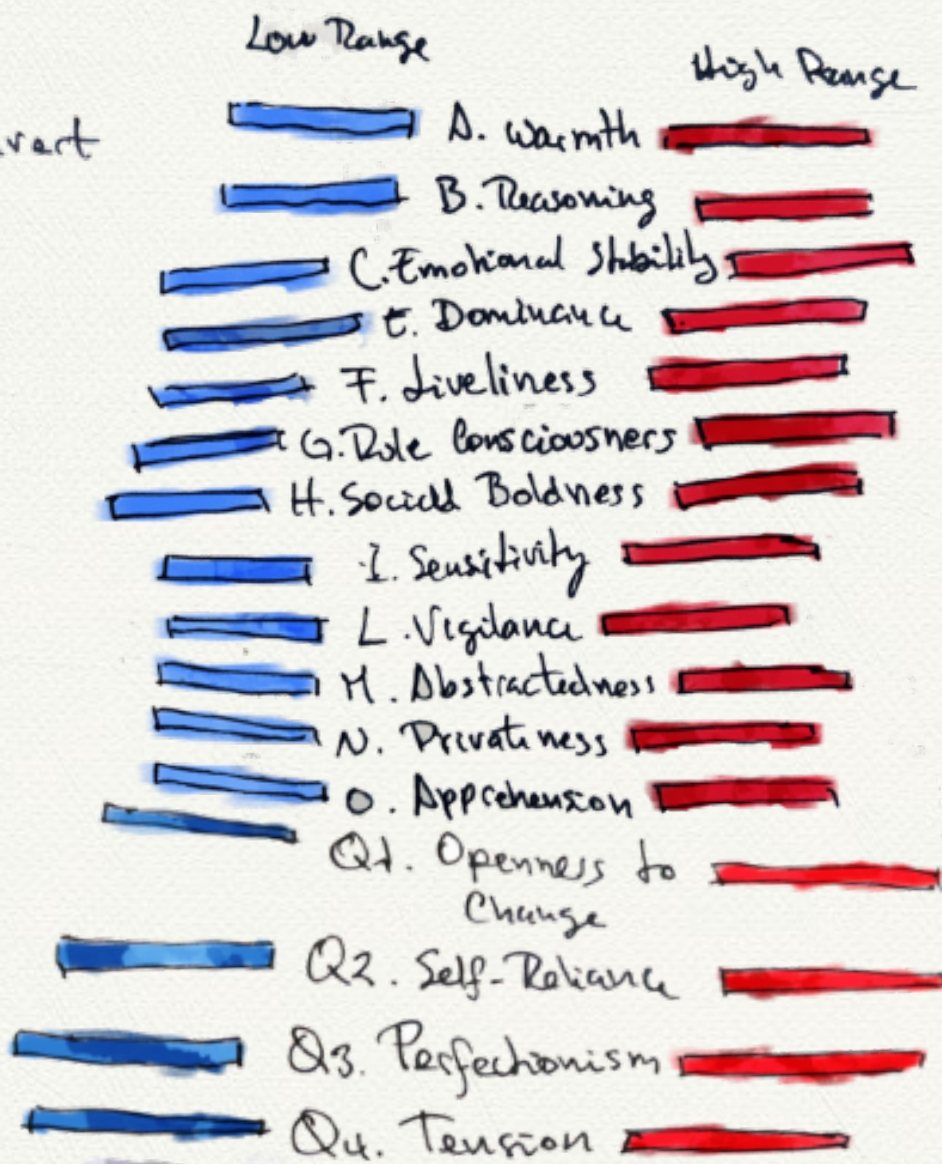 Low Range
High Range
A. Warmth
B. Reasoning
C. Emotional Stability
E. Dominance
F. Liveliness
G. Rule Consciousness
H. Social Boldness
I. Sensitivity
L. Vigilance
M. Abstractedness
N. Privateness
O. Apprehension
Q1. Openness to
Change
Q2. Self-Reliance
Q3. Perfectionism
Q4. Tension